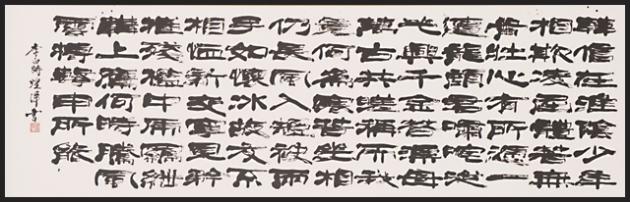 韓信在淮陰少年
相欺凌屈體若無
骨壯心有所憑一
遭龍顏君嘯咤從
此興千金答漂母
萬古共嗟稱而我
竟何為寒苦坐相
仍長風入短袂兩
手如懷冰故友不
相恤新交寧見矜
摧殘檻中虎羈紲
韝上鷹何時騰風
雲搏擊申所能
李白詩 書